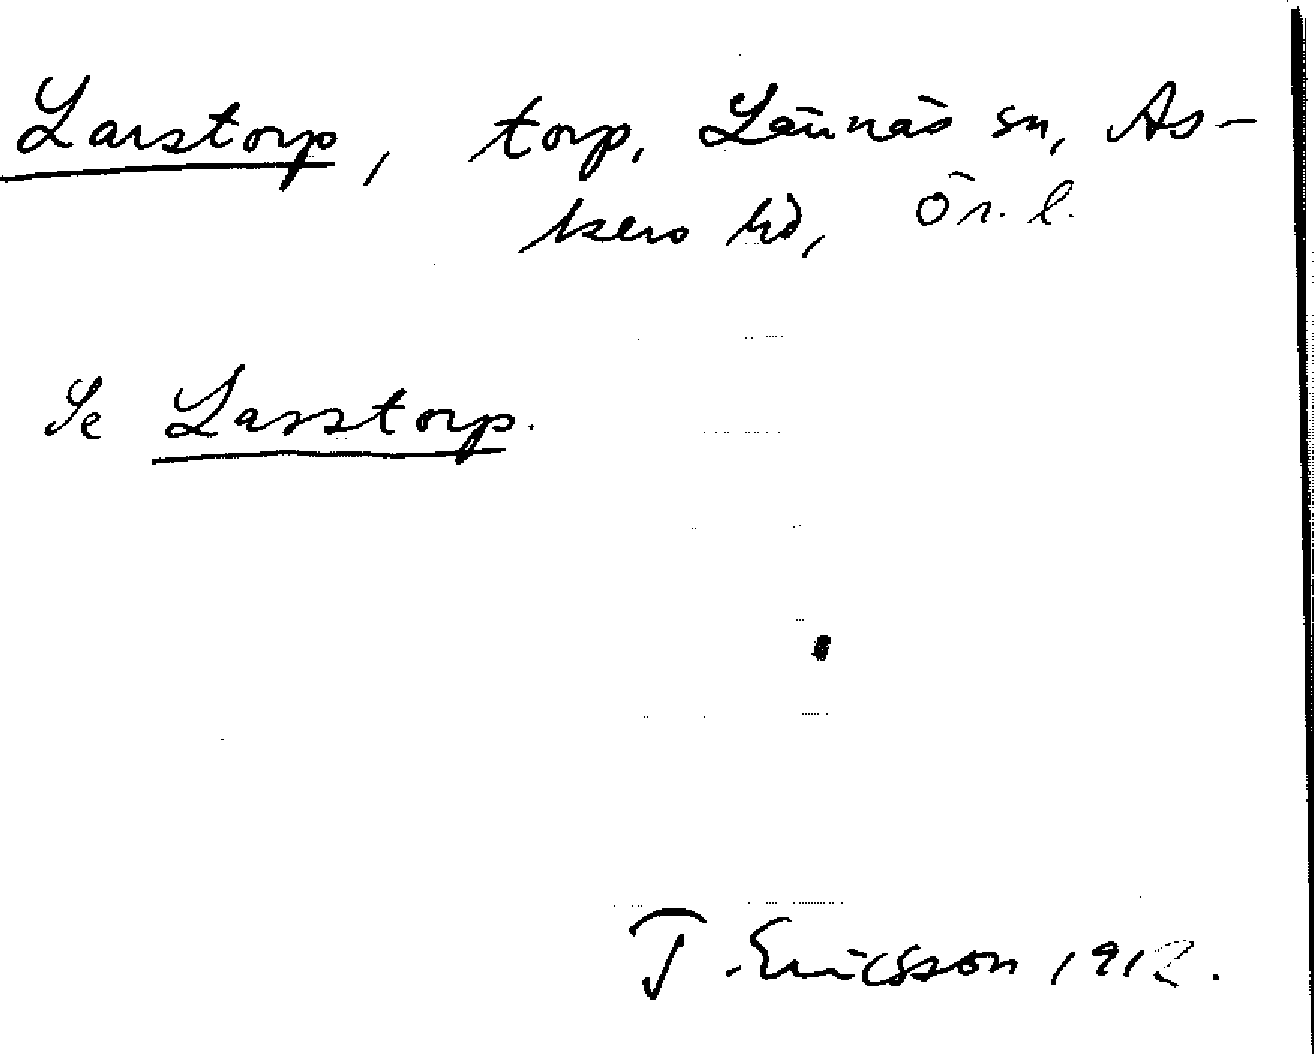 Larstorp, torp, Lännäs sn, As-
kers hd, Ör. l.
Se Lasstorp.
T. Ericsson 1912.